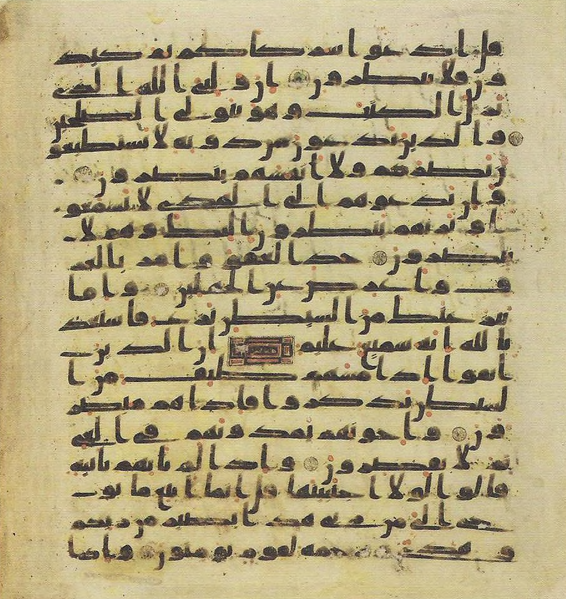 قل ادعوا شركاكم ثم كيدو
ن فلا تنظرون ان ولي الله الذي
نزل الكتب وهو يتولى الصلحين
والذين تدعون من دونه لا يستطيعو
ن نصركم ولا انفسهم ينصرون
وان تدعوهم الى الهدى لا يسمعو
ا وتريهم ينظرون اليك وهم لا
يبصرون خذ العفو وامر بالعر
ف واعرض عن الجهلين واما
ينزغنك من الشيطن نزغ فاستعذ
بالله انه سميع عليم ان الذين
اتقوا اذا مسهم طيف من ا
لشيطن تذكروا فاذا هم مبصر
ون واخونهم يمدونهم في الغي
ثم لا يقصرون واذا لم تاتهم باية
قالوا لولا اجتبيتها قل انما اتبع ما يو
حى الي من ربي هذا بصير من ربكم
وهدى ورحمة لقوم يومنون واذا